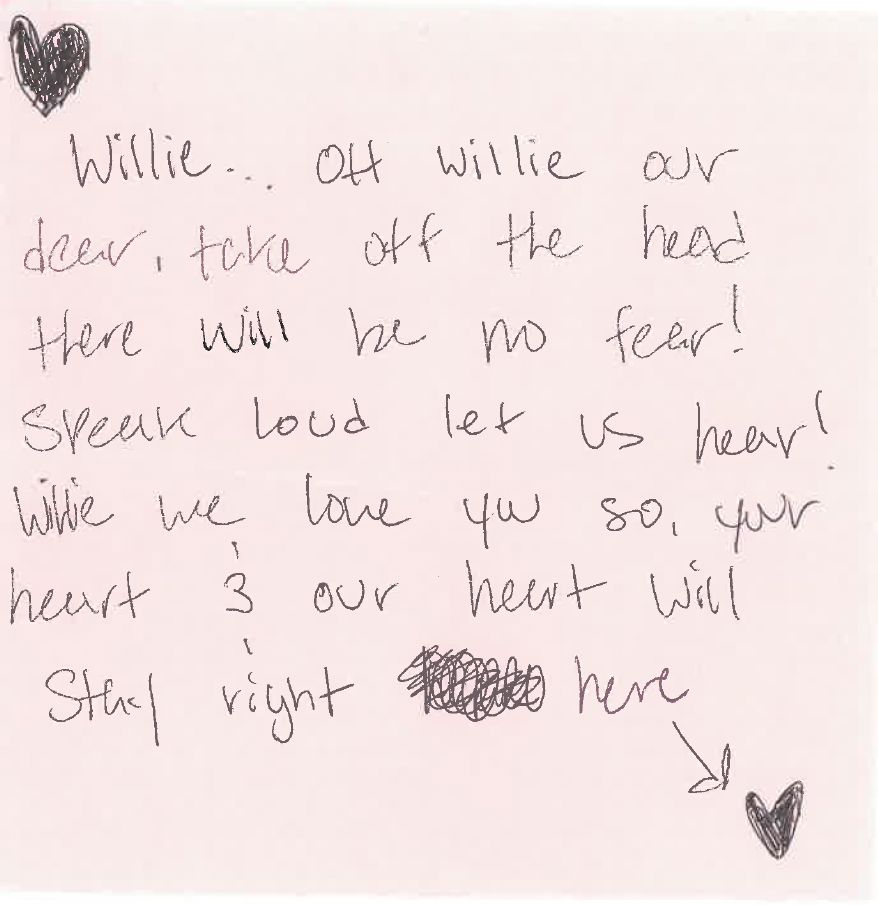 Willie... OH willie our
dear, take off the head
there will be no fear!
Speak loud let us hear!
Willie we love you so, your
heart & our heart will
Stay right here